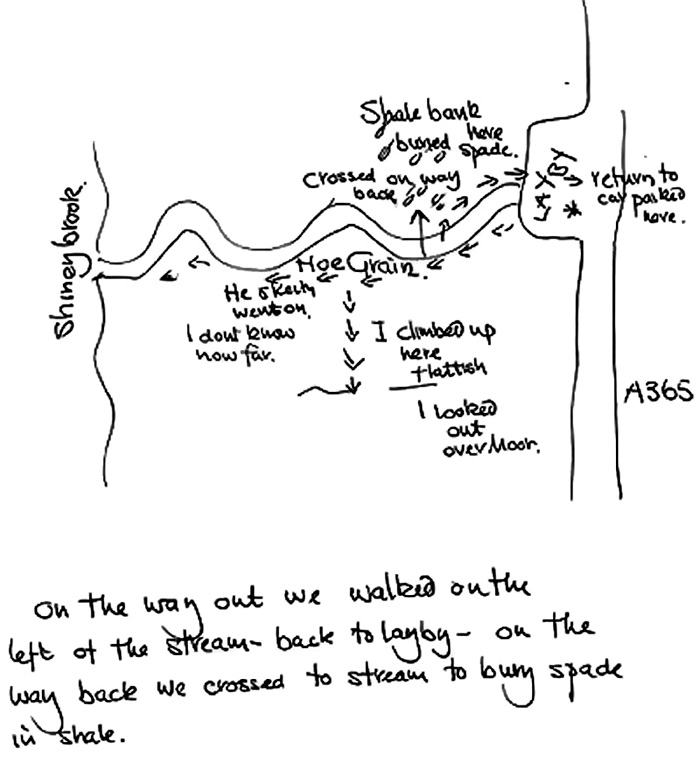 Shale bank
buried here
spade.
crossed on way
back
return to
car parked
here.
Shiney brook.
Hoe Grain.
He
went on.
I dont know
how far.
I climbed up
here
flattish
I looked
out
over Moor.
A365
on the way out we walked on the
left of the stream - back to layby - on the
way back we crossed to stream to bury spade
in shale.